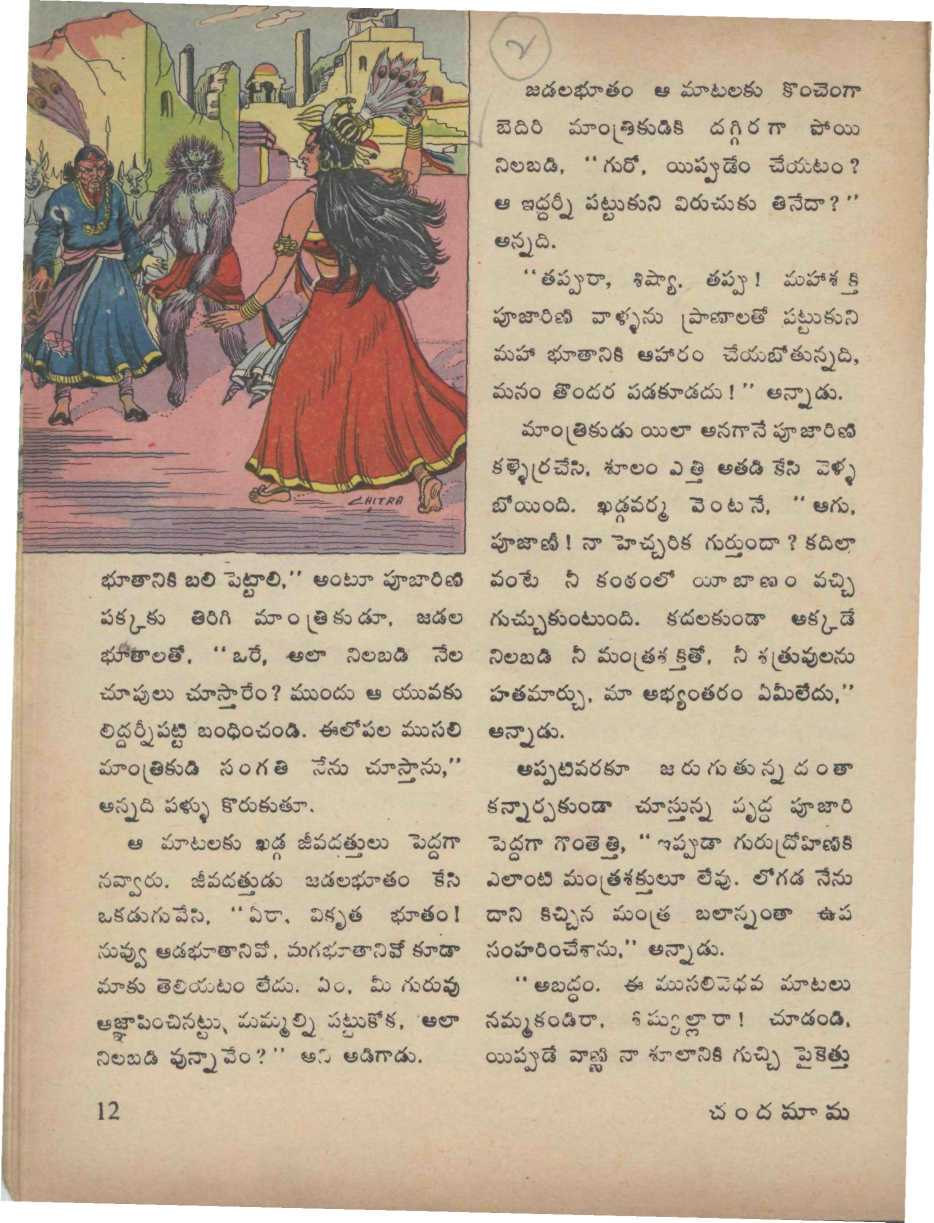 2
CHITRA
భూతానికి బలి పెట్టాలి,'' అంటూ పూజారిణి
పక్కకు తిరిగి మాంత్రికుడూ, జడల
భూతాలతో, ''ఒరే, అలా నిలబడి నేల
చూపులు చూస్తారేం? ముందు ఆ యువకు
లిద్దర్నీపట్టి బంధించండి. ఈలోపల ముసలి
మాంత్రికుడి సంగతి నేను చూస్తాను,''
అన్నది పళ్ళు కొరుకుతూ.
ఆ మాటలకు ఖడ్గ జీవదత్తులు పెద్దగా
నవ్వారు. జీవదత్తుడు జడలభూతం కేసి
ఒకడుగువేసి, ''ఏరా, వికృత భూతం!
నువ్వు ఆడభూతానివో, మగభూతానివో కూడా
మాకు తెలియటం లేదు. ఏం, మీ గురువు
ఆజ్ఞాపించినట్టు మమ్మల్ని పట్టుకోక, అలా
నిలబడి వున్నావేం?'' అని అడిగాడు.
జడలభూతం ఆ మాటలకు కొంచెంగా
బెదిరి మాంత్రికుడికి దగ్గిరగా పోయి
నిలబడి, ''గురో, యిప్పుడేం చేయటం?
ఆ ఇద్దర్నీ పట్టుకుని విరుచుకు తినేదా?''
అన్నది.
''తప్పురా, శిష్యా, తప్పు! మహాశక్తి
పూజారిణి వాళ్ళను ప్రాణాలతో పట్టుకుని
మహా భూతానికి ఆహారం చేయబోతున్నది,
మనం తొందర పడకూడదు!'' అన్నాడు.
మాంత్రికుడు యిలా అనగానే పూజారిణి
కళ్ళెర్రచేసి, శూలం ఎత్తి అతడి కేసి వెళ్ళ
బోయింది. ఖడ్గవర్మ వెంటనే, ''ఆగు,
పూజాణీ! నా హెచ్చరిక గుర్తుందా? కదిలా
వంటే నీ కంఠంలో యీ బాణం వచ్చి
గుచ్చుకుంటుంది. కదలకుండా అక్కడే
నిలబడి నీ మంత్రశక్తితో, నీ శత్రువులను
హతమార్చు, మా అభ్యంతరం ఏమీలేదు,''
అన్నాడు.
అప్పటివరకూ జరుగుతున్నదంతా
కన్నార్పకుండా చూస్తున్న వృద్ధ పూజారి
పెద్దగా గొంతెత్తి, ''ఇప్పుడా గురుద్రోహిణికి
ఎలాంటి మంత్రశక్తులూ లేవు. లోగడ నేను
దాని కిచ్చిన మంత్ర బలాన్నంతా ఉప
సంహరించేశాను,'' అన్నాడు.
''అబద్ధం. ఈ ముసలివెధవ మాటలు
నమ్మకండిరా, శిష్యుల్లారా! చూడండి,
యిప్పుడే వాణ్ణి నా శూలానికి గుచ్చి పైకెత్తు
12
చందమామ